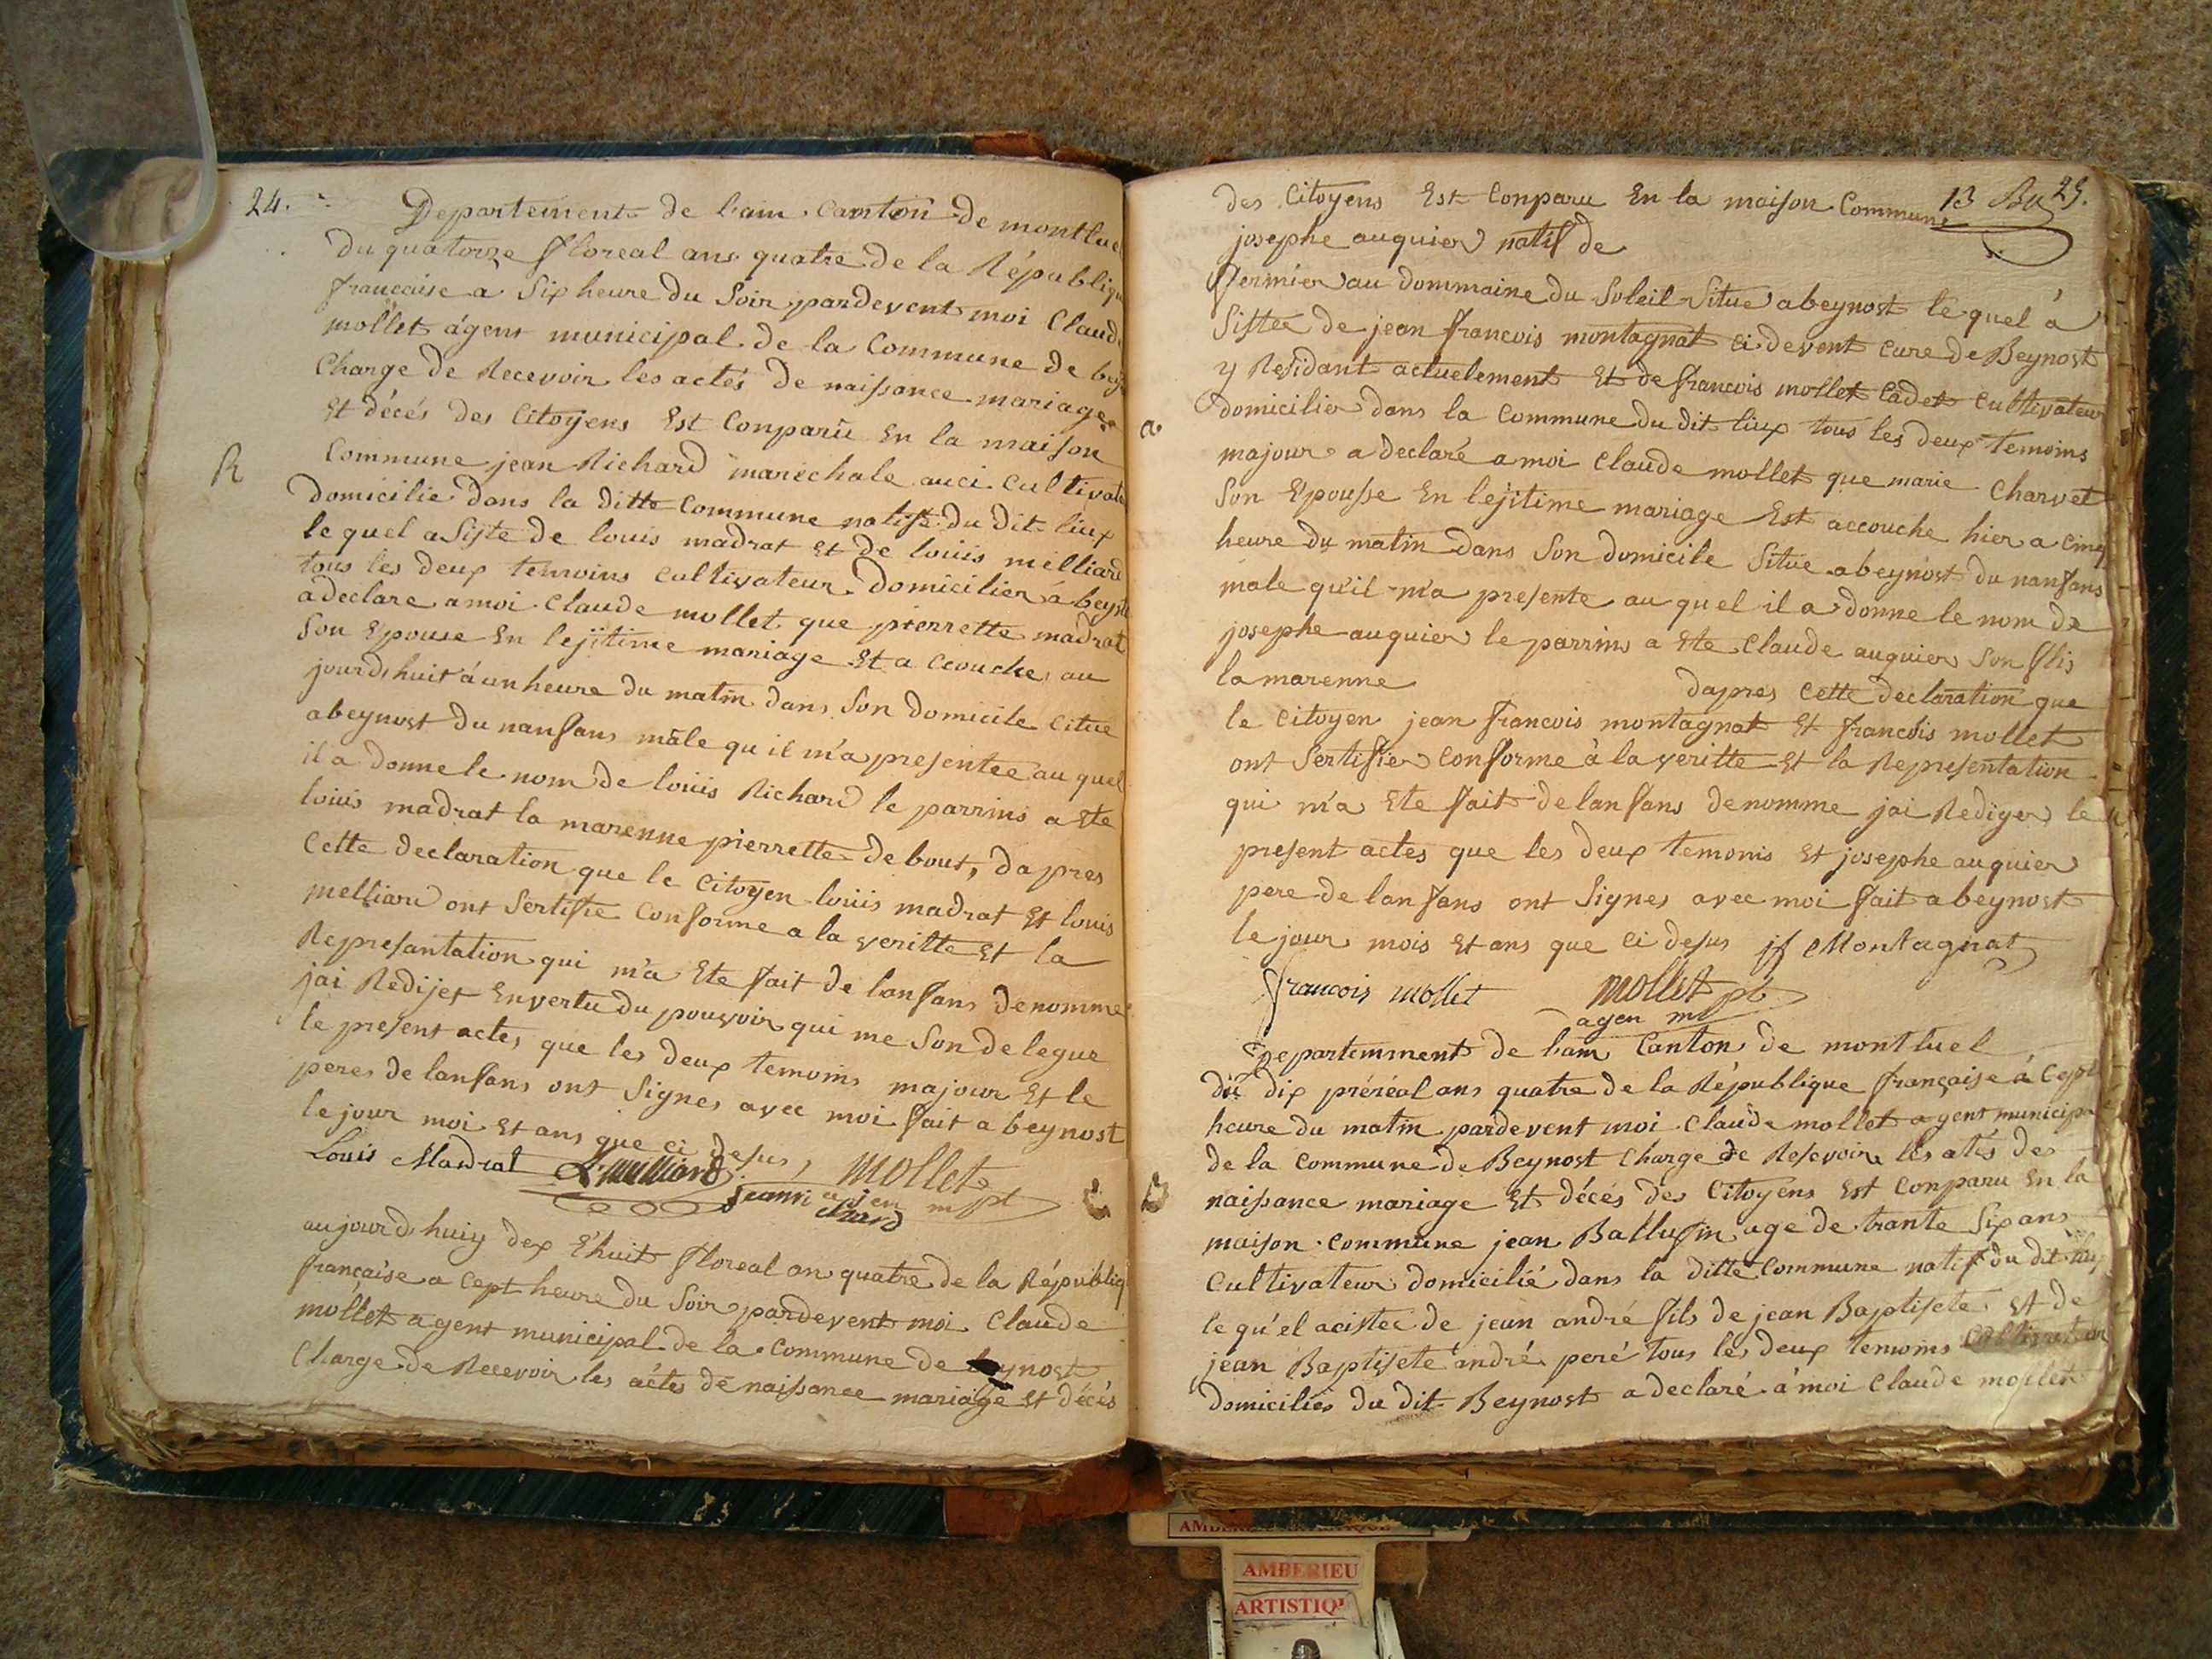 24.
Departement de lain Canton de montluel
Du quatorze floreal ans quatre de la Républiq
française a Six heure du Soir pardevent moi Claude
mollet agent municipal de la Commune de bey
Charge de Recevoir les actes de naissance mariage
Et décés des Citoyens Est Conparu En la maison
R
Commune jean Richard maréchale auci Cultivate
domicilie dans la ditte Commune natif du dit liux
le quel a Siste de louis madrat Et de louis milliard
tous les deux temoins Cultivateur domicilier a beyn
a declare a moi Claude mollet que pierrette madrat
Son Epouse En lejitime mariage Et a ccouche au
jourdhuit á un heure du matin dans Son domicile Citue
a beynost du nanfans mâle qu il m'a presentee au quel
il a donne le nom de louis Richard le parrins a Ete
louis madrat la marenne pierrette debout, da pres
Cette declaration que le Citoyen louis madrat Et louis
melliard ont Sertifie Conforme a la veritte Et la
Represantation qui m'a Ete fait de lanfans denomme
jai Redijer En vertu du pouvoir qui me Son delegue
le present actes que les deux temoins majour Et le
peres de lanfans ont Signes avec moi fait a beynost
le jour moi Et ans que ci desus,
Louis Madrat L. milliard mollet
agen mpl
aujourdhuiy dix Ehuit floreal an quatre de la Républiq
française a Cept heure du Soir pardevent moi Claude
mollet agent municipal de la Commune de beynost
Charge de Recevoir les actes de naissance mariage Et décés
13 25.
des Citoyens Est Conparu En la maison Commune
josephe auquier natif de
fermier au dommaine du Soleil Situe a beynost le quel à
Sistée de jean francois montagnat Ci devent Cure de Beynost
y Residant actuelement Et de francois mollet Cadet Cultivateur
a
domicilier dans la Commune du dit liux tous les deux temoins
majour a declaré a moi Claude mollet que marie Charvet
Son Epousse En lejitime mariage Est accouche hier a Cinq
heure du matin dans Son domicile Situe a beynost du nanfans
male qu'il m'a presente au quel il a donne le nom de
josephe auquier le parrins a Ete Claude auquier Son flis
la marenne dapres Cette declaration que
le Citoyen jean francois montagnat Et francois mollet
ont Sertifier Conforme à la veritte Et la Representation
qui m'a Ete fait de lanfans denomme jai Rediger le
present actes que les deux temonis Et josephe auquier
pere de lanfans ont Signes avec moi fait a beynost
le jour mois Et ans que Ci desus jf Montagnat
francois mollet mollet
agen mpl
Departemment de lain Canton de montluel
du dix préréal ans quatre de la République française á Cept
heure du matin pardevent moi Claude mollet agent municipa
de la Commune de Beynost Charge de Resevoir les atés de
naissance mariage Et décés des Citoyens Est Conparu En la
maison Commune jean Ballufin age de trante Six ans
Cultivateur domicilié dans la ditte Commune natif du dit
le qu'el acistée de jean andré fils de jean Baptisete Et de
jean Baptisete andré peré tous les deux temoins Cultivateur
domiciliés du dit Beynost a declaré á moi Claude mollet
AMBERIEU
ARTISTIQ